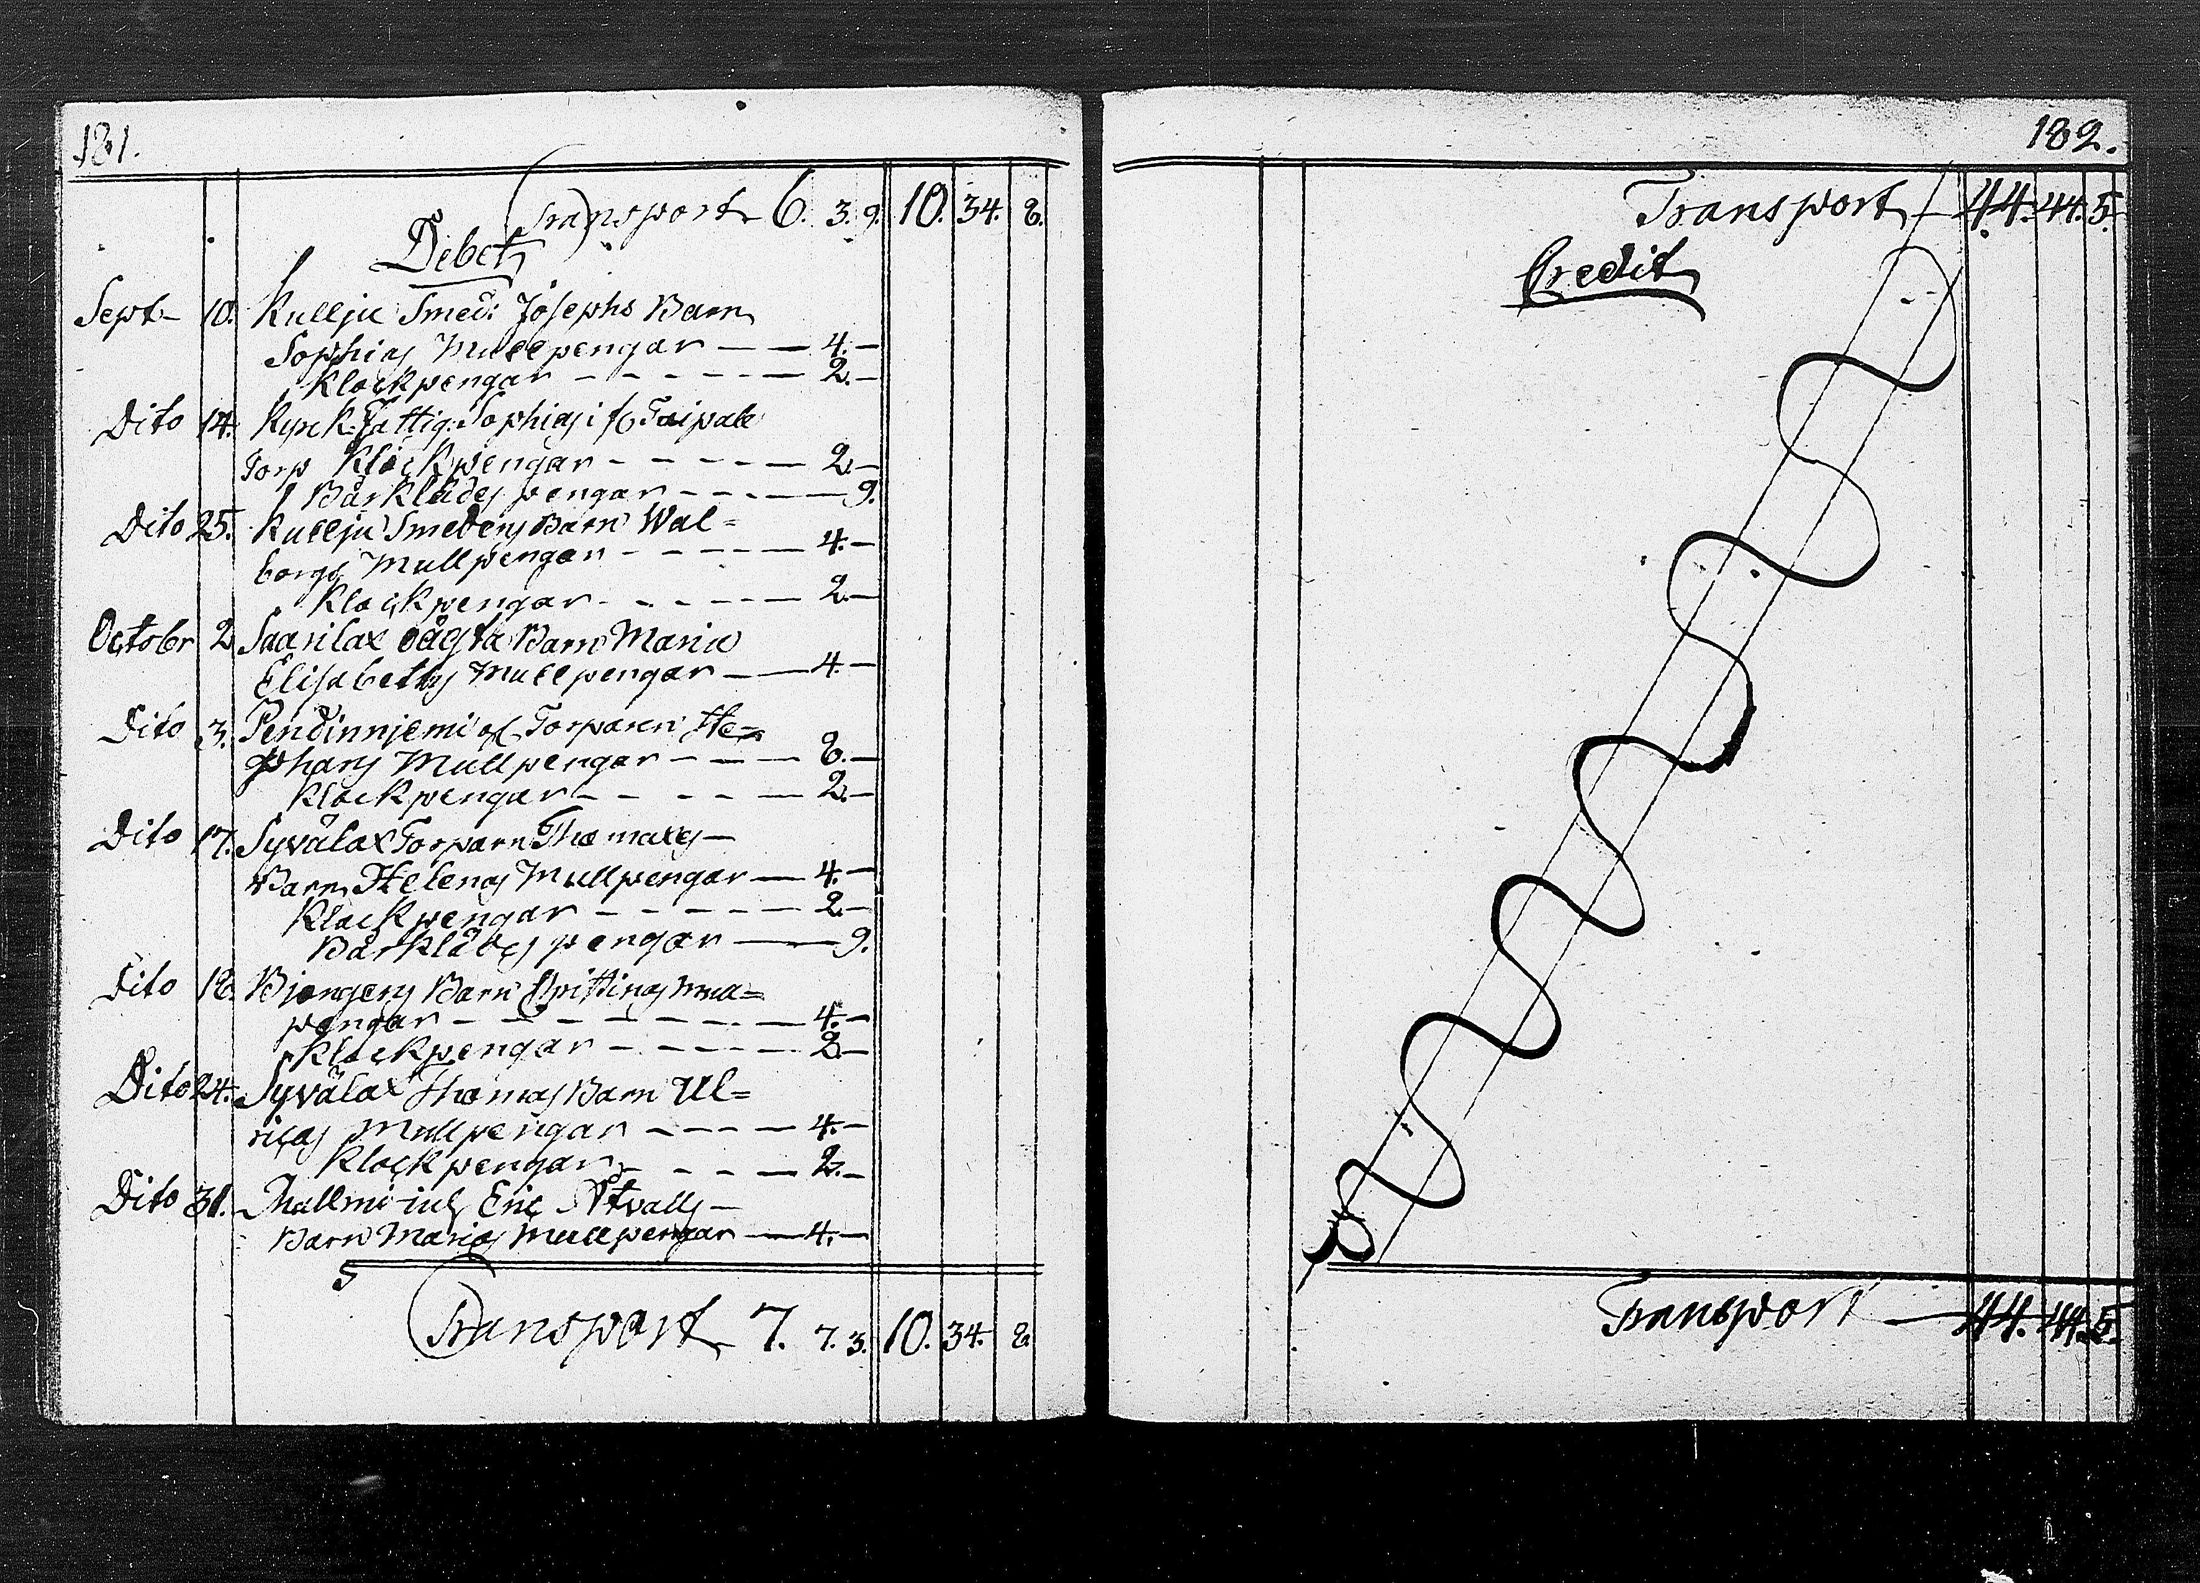 181.
Transport 6. 3. 9. 10. 34. 8.
Debet
Sept 10. Kullju Smed: Josephs Barn
Sophias Mullpengar — — 4. —
Klockpengar - - - - — 2. —
Dito 14. Kyrk: Fattig: Sophias i Taipale
Torp Klockpengar - - - - — 2. —
Bårklädes pengar - - - — 9.
Dito 25. Kullju Smedens Barn Wal=
borgs Mullpengar - - - - — 4. —
Klockpengar - - - - — 2. —
October 2 Saarilax Barn Maria
Elisabeths Mullpengar — — 4. —
Dito 3. Pendinnjemi Torparen Ste=
phans Mullpengar - - — 8. —
Klockpengar - - - - — 2. —
Dito 17. Syvälax Torparn Thomases —
Barn Helenas Mullpengar — 4. —
Klockpengar - - - - — 2. —
Bårklädes pengar — — 9.
Dito 18. Bjongers Barn Christinas
pengar - - - - - - — 4. —
Klockpengar - - - - — 2 —
Dito 24. Syvälax Thomas Barn Ul=
ricas Mullpengar - - - — 4. —
Klockpengar - - - — 2. —
Dito 31. Eric
Barn Marias Mullpengar — 4. —
Transport 7. 7. 3. 10. 34. 8.
182.
Transport — 44. 44. 5.
Credit
Transport — 44. 44. 5.